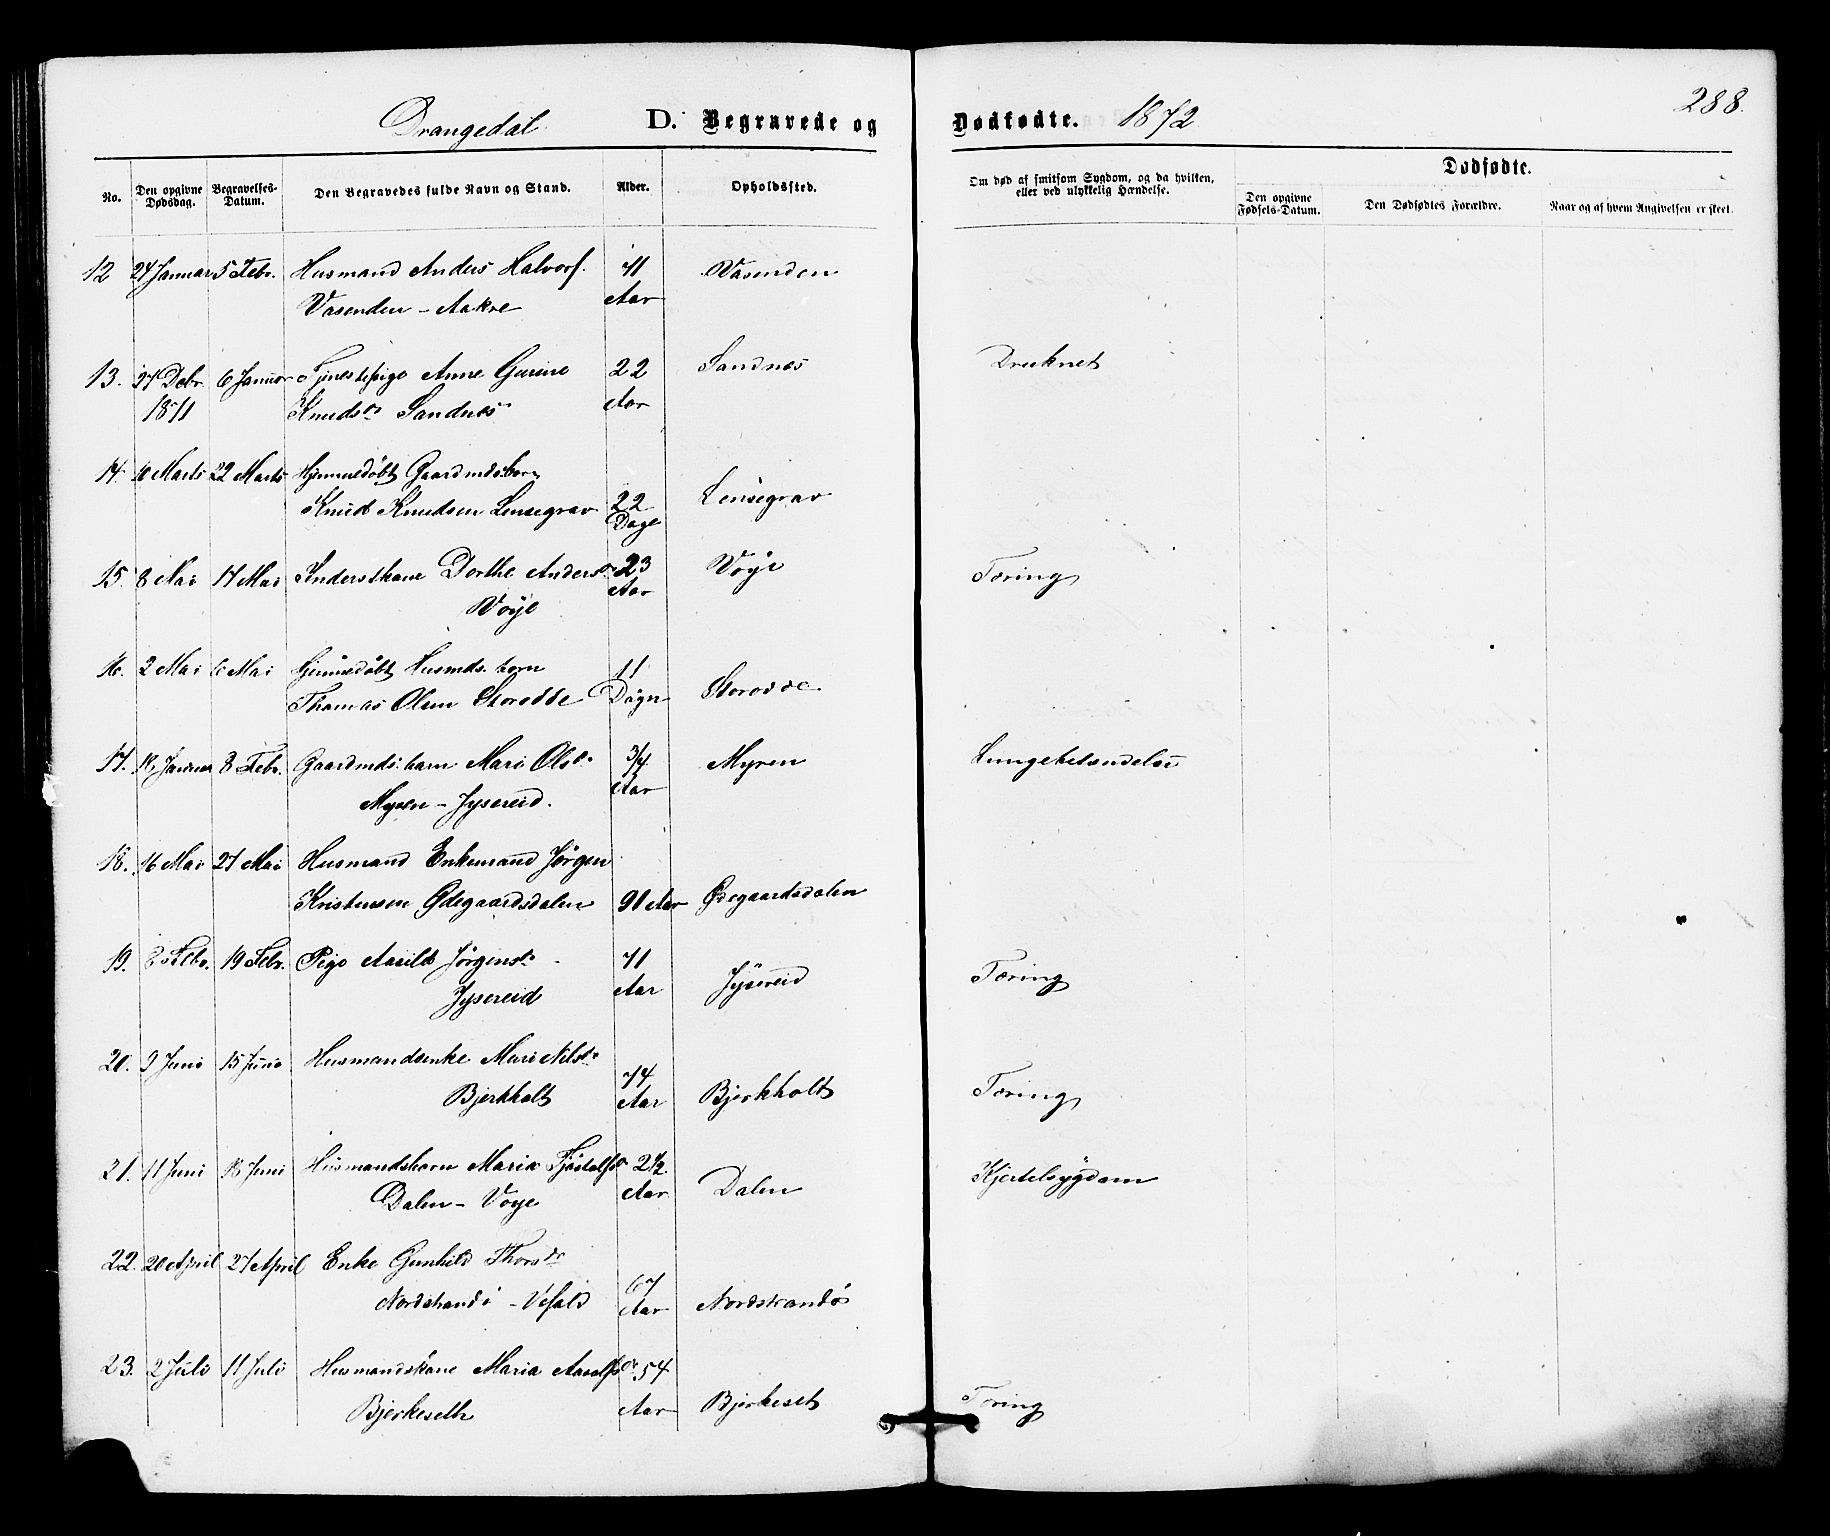 Drangedal D. Begravede og Dødfødte. 1872 288.
No.
Den opgivne Dødsdag.
Begravelses-Datum.
Den Begravedes fulde Navn og Stand.
Alder.
Opholdssted.
Om død af smitsom Sygdom, og da hvilken,
eller ved ulykkelig Hændelse.
Dødfødte.
Den opgivne Fødsels-Datum.
Den Dødfødtes Forældre.
Naar og af hvem Angivelsen er skeet.
12 24 Januar 5 Febr. Husmand Anders Halvors. 71 Vasenden
Vasenden - Aakre Aar
13. 27 Debr. 6 Januar Tjenestepige Anne Gurine 22 Sandnes Druknet
1871 Knudsdr Sandnes Aar
14. 10 Marts 22 Marts Hjemmedøbt Gaardmdsbarn
Knud Knudsen Lensegrav 22 Lensegrav
Dage
15. 8 Mai 17 Mai Inderstkone Dorthe Andersdr 23 Voje Tæring
Voje Aar
16. 2 Mai 6 Mai Hjemmedøbt Husmds. barn 11
Thomas Olsen Storodde Døgn Storodde
17. 18 Januar 8 Febr. Gaardmds. barn Mari Olsdr. 3/4 Myren Lungebetændelse
Myren - Jysereid. Aar
18. 16 Mai 27 Mai Husmand Enkemand Jørgen
Kristensen Ødegaardsdalen 90 Aar Ødegaardsdalen
19. 8 Febr. 19 Febr. Pige Aasild Jørgensdr. 71 Jysereid Tæring
Jysereid Aar
20. 9 Juni 15 Juni Husmandsenke Mari Nilsdr. 74
Bjerkholt Aar Bjerkholt Tæring
21. 11 Juni 18 Juni Husmandsbarn Maria Tjøstolfsdr 2 1/2 Dalen Kjertelsygdom
Dalen - Voje Aar
22. 20 April 27 April Enke Gunhild Thorsdr 67
Nordstrandø - Vefald Aar Nordstrandø
23. 2 Juli 11 Juli Husmandskone Maria Aasolfsdr. 54
Bjerkeseth Aar Bjerkeset Tæring